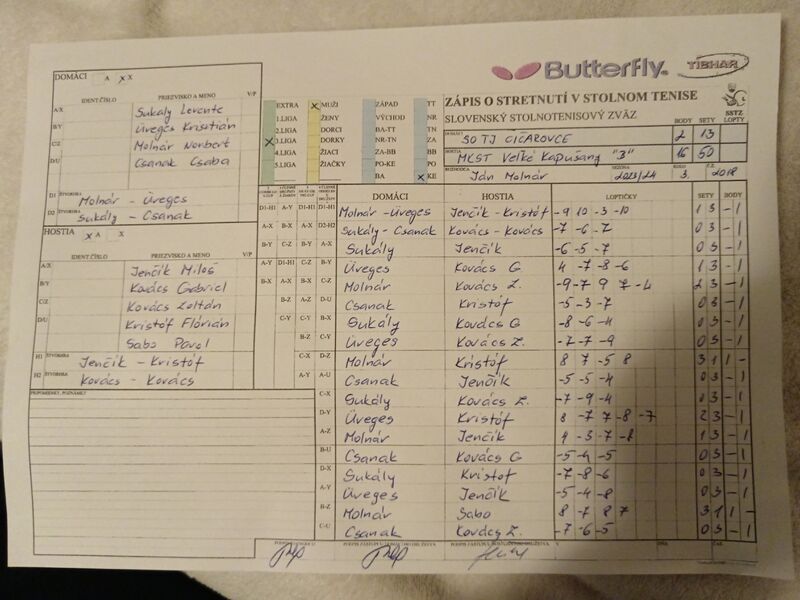 Butterfly
TIBHAR
DOMÁCI A X X
IDENT.ČÍSLO PRIEZVISKO A MENO V/P
A/X Sukaly Levente
B/Y Üveges Krisztián
C/Z Molnár Norbert
D/U Csanak Csaba
D1 ŠTVORHRA Molnár - Üveges
D2 ŠTVORHRA Sukaly - Csanak
HOSTIA X A X
IDENT.ČÍSLO PRIEZVISKO A MENO V/P
A/X Jenčík Miloš
B/Y Kovács Gabriel
C/Z Kovács Zoltán
D/U Kristóf Flórián
Sabo Pavol
H1 ŠTVORHRA Jenčík - Kristóf
H2 ŠTVORHRA Kovács - Kovács
PRIPOMIENKY, POZNÁMKY
EXTRA X MUŽI ZÁPAD TT
1.LIGA ŽENY VÝCHOD NR
2.LIGA DORCI BA-TT TN
X 3.LIGA DORKY NR-TN ZA
4.LIGA ŽIACI ZA-BB BB
5.LIGA ŽIAČKY PO-KE PO
BA X KE
ZÁPIS O STRETNUTÍ V STOLNOM TENISE
SLOVENSKÝ STOLNOTENISOVÝ ZVÄZ
SSTZ
BODY SETY LOPTY
DOMÁCI SO TJ ČIČAROVCE 2 13
HOSTIA MKST Veľké Kapušany "3" 16 50
ROZHODCA Ján Molnár SEZÓNA 2023/24 KOLO 3. Č.Z. 2018
DOMÁCI HOSTIA LOPTIČKY SETY BODY
D1-H1 A-Y D1-H1 D1-H1 Molnár - Üveges Jenčík - Kristóf -9 10 -3 -10 1 3 - 1
A-X B-X A-X D2-H2 Sukály - Csanak Kovács - Kovács -7 -6 -7 0 3 - 1
B-Y C-Z B-Y A-X Sukály Jenčík -6 -5 -7 0 3 - 1
A-Y D1-H1 C-Z B-Y Üveges Kovács G 4 -7 -8 -6 1 3 - 1
B-X A-X B-X C-Z Molnár Kovács Z. -9 -7 9 7 -4 2 3 - 1
B-Z A-Z D-U Csanak Kristóf -5 -3 -7 0 3 - 1
C-Y C-Y A-Y Sukály Kovács G -8 -6 -4 0 3 - 1
B-Z C-Y Üveges Kovács Z. -7 -7 -9 0 3 - 1
C-X D-Z Molnár Kristóf 8 7 -5 8 3 1 1 -
A-Y A-U Csanak Jenčík -5 -5 -4 0 3 - 1
C-X Sukály Kovács Z. -7 -9 -4 0 3 - 1
D-Y Üveges Kristóf 8 -7 7 -8 -7 2 3 - 1
A-Z Molnár Jenčík 9 -3 -7 -8 1 3 - 1
B-U Csanak Kovács G -5 -4 -5 0 3 - 1
D-X Sukály Kristof -7 -8 -6 0 3 - 1
A-Y Üveges Jenčík -5 -4 -8 0 3 - 1
B-Z Molnár Sabo 8 -7 8 7 3 1 1 -
C-U Csanak Kovács Z. -7 -6 -5 0 3 - 1